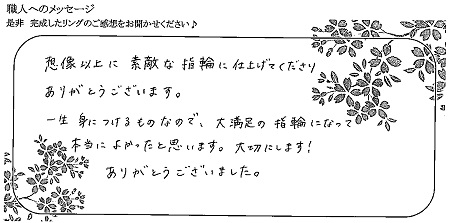 職人へのメッセージ
是非 完成したリングのご感想をお聞かせください♪
想像以上に 素敵な 指輪に仕上げてくださり
ありがとうございます。
一生 身につけるものなので、大満足の 指輪になって
本当に よかったと思います。大切にします!
ありがとうございました。